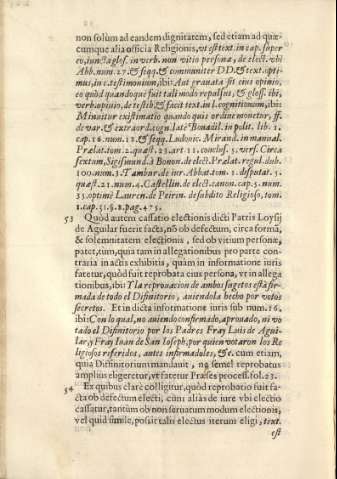 non solùm ad eandem dignitatem, sed etiam ad quæ-
cumque alia officia Religionis, vt est text. in cap. super
eo, iuncta glos. in verb. non vitio persona, de elect. vbi
Abb. num. 27. & seqq. & communiter DD. & text. opti-
mus, in c. testimonium, ibi: Aut grauata sit eius opinio,
eo quòd quandoque fuit tali modo repulsus, & glos. ibi,
verb. opinio, de testib. & facit text. in l. cognitionum, ibi:
Minuitur existimatio quando quis ordine monetur, ff.
de var. & extraord. cogn. latè Bonacil. in polit. lib. 1.
cap. 16. num. 12. & seqq. Ludouic. Mirand. in manual.
Prælat. tom. 2. quæst. 23. art. 11. conclus. 5. vers. Circa
sextum, Sigismund. à Bonon. de elect. Prælat. regul. dub.
100. num. 3. Tambur. de iur. Abbat. tom. 1. disputat. 5.
quæst. 21. num. 4. Castellin. de elect. canon. cap. 5. num.
35. optimè Lauren. de Peirin. de subdito Religioso, tom.
1. cap. 31. §. 2. pag. 475.
53 Quòd autem cassatio electionis dicti Patris Loysij
de Aguilar fuerit facta, nō ob defectum, circa formā,
& solemnitatem electionis, sed ob vitium personæ,
patet, tùm, quia tam in allegationibus pro parte con-
traria in actis exhibitis, quàm in informatione iuris
fatetur, quòd fuit reprobata eius persona, vt in allega
tionibus, ibi: Y la reprouacion de ambos sugetos està fir-
mada de todo el Difinitorio, auiendola hecho por votos
secretos. Et in dicta informatione iuris sub num. 16.
ibi: Con lo qual, no auiendo confirmado, aprouado, ni vo
tado el Difinitorio por los Padres Fray Luis de Agui-
lar, y Fray Iuan de San Ioseph, por quien votaron los Re
ligiosos referidos, antes infirmadoles, &c. cum etiam,
quia Diffinitorium mandauit, ne semel reprobatus
ampliùs eligeretur, vt fatetur Præses process. fol. 23.
54 Ex quibus clarè colligitur, quòd reprobatio fuit fa-
cta ob defectum electi, cùm aliàs de iure vbi electio
cassatur, tantùm ob non seruatum modum electionis,
vel quid simile, possit talis electus iterum eligi, text.
est